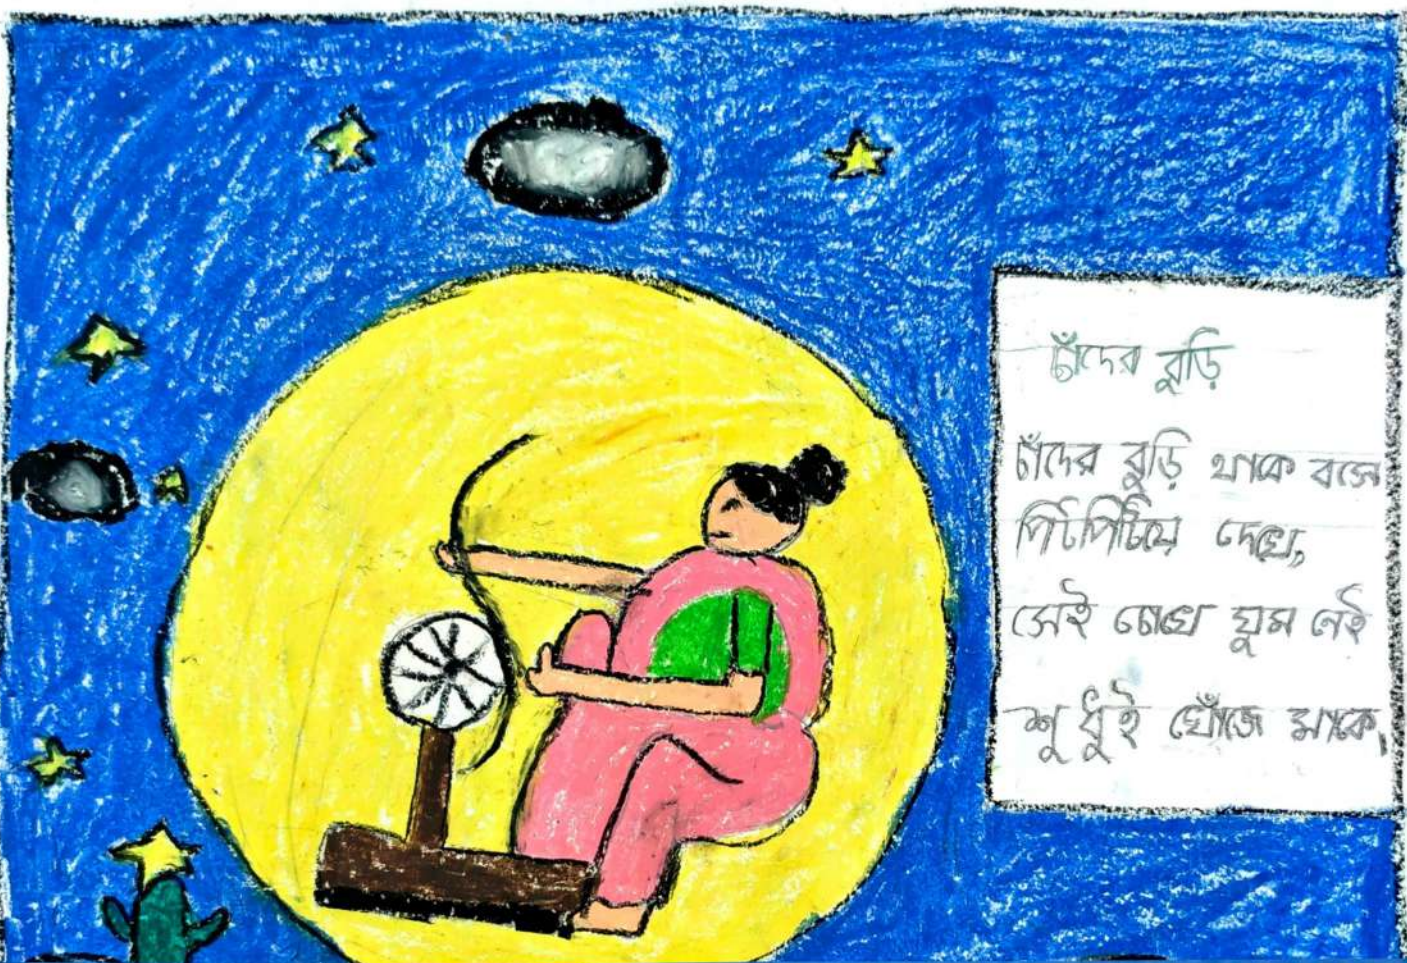 চাঁদের বুড়ি
চাঁদের বুড়ি থাকে বসে
পিটপিটিয়ে দেখে,
সেই চোখে ঘুম নেই
শুধুই খোঁজে মাকে,